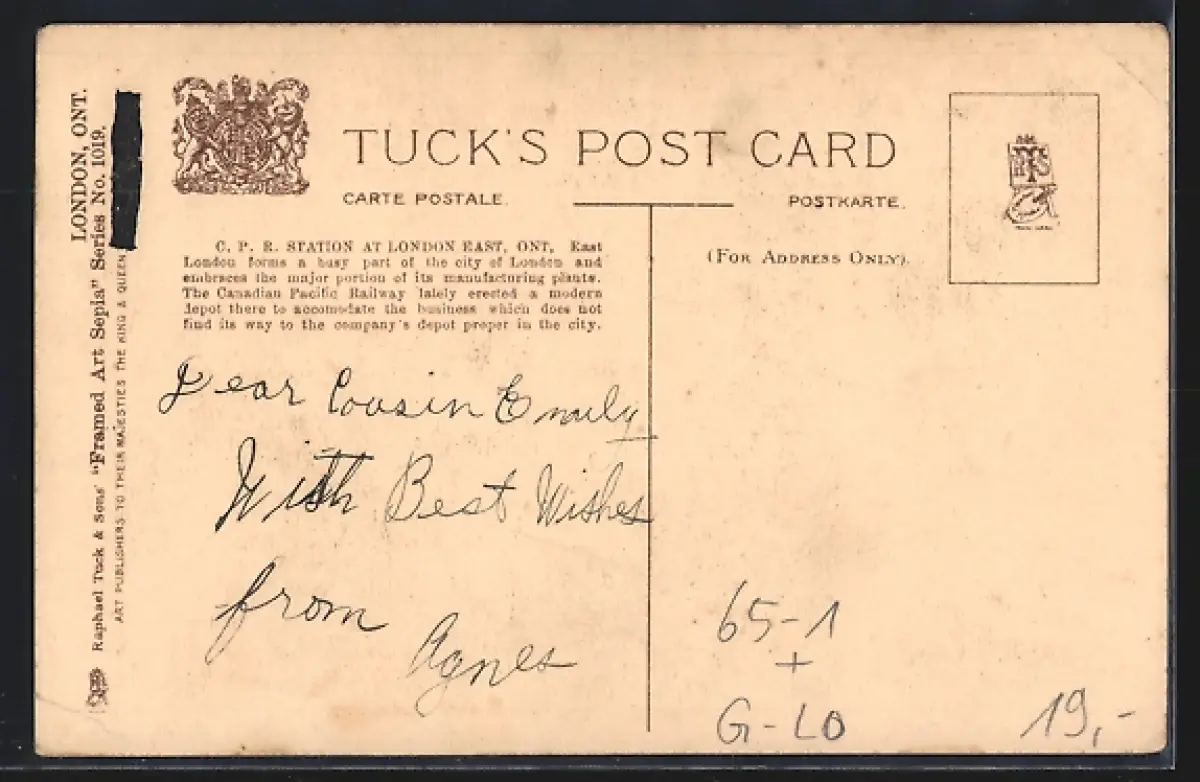 LONDON, ONT.
Raphael Tuck & Sons' "Framed Art Sepia" Series No. 1019.
ART PUBLISHERS TO THEIR MAJESTIES THE KING & QUEEN
TUCK'S POST CARD
CARTE POSTALE.
POSTKARTE.
C. P. R. STATION AT LONDON EAST, ONT, East
London forms a busy part of the city of London and
embraces the major portion of its manufacturing plants.
The Canadian Pacific Railway lately erected a modern
depot there to accomodate the business which does not
find its way to the company's depot proper in the city.
(FOR ADDRESS ONLY).
Dear Cousin Emily
With Best Wishes
from
Agnes
65-1
+
G-LO
19,-